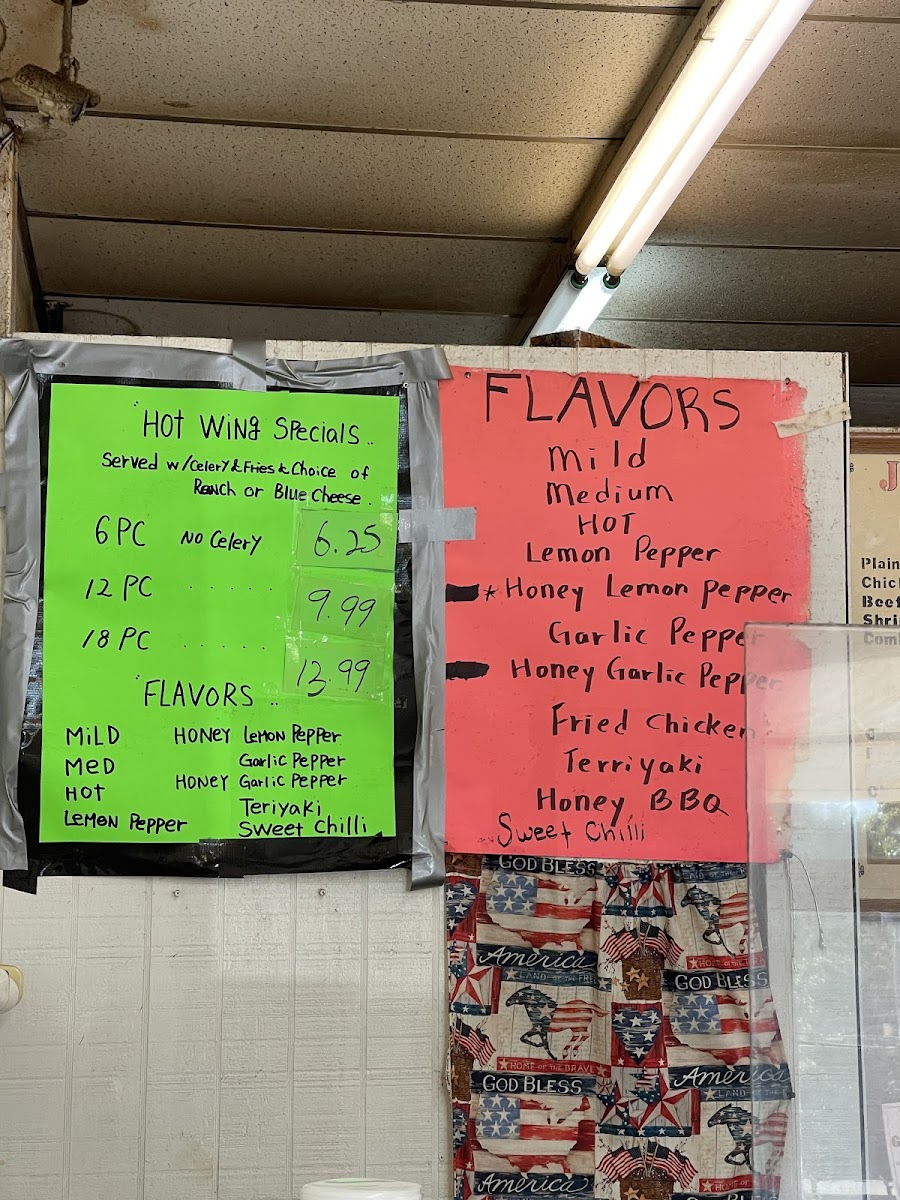 HOT WING SPECIALS..
Served w/Celery & Fries & Choice of
Ranch or Blue Cheese.
6 PC NO Celery 6.25
12 PC ..... 9.99
18 PC ...... 13.99
FLAVORS
MILD HONEY LEMON PEPPER
MED Garlic Pepper
HOT HONEY Garlic PEPPER
LEMON PEPPER Teriyaki
SWEET Chilli
FLAVORS
Mild
Medium
HOT
Lemon Pepper
*Honey Lemon Pepper
Garlic Pepper
Honey Garlic Pepper
Fried Chicken
Terriyaki
Honey BBQ
Sweet Chilli
J
Plain
Chic
Beef
Shri
Com
GOD BLESS
America
LAND OF THE FREE
HOME OF THE
GOD BLESS
HOME OF THE BRAVE
GOD BLESS
America
LAND OF THE
America
HOME OF